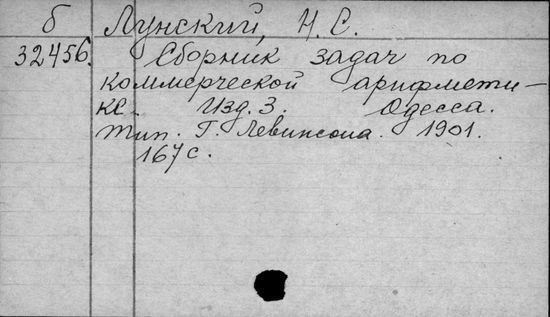 б Лунский, Н. С.
32456. Сборник задач по
коммерческой арифмети-
ке. Изд. 3. Одесса.
Тип. Г. Левинсона. 1901.
167 с.